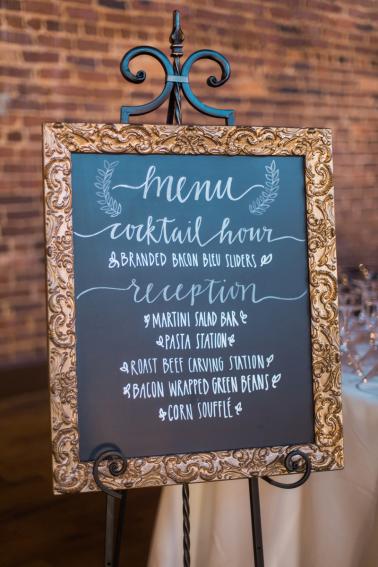 menu
cocktail hour
BRANDED BACON BLEU SLIDERS
reception
MARTINI SALAD BAR
PASTA STATION
ROAST BEEF CARVING STATION
BACON WRAPPED GREEN BEANS
CORN SOUFFLÉ